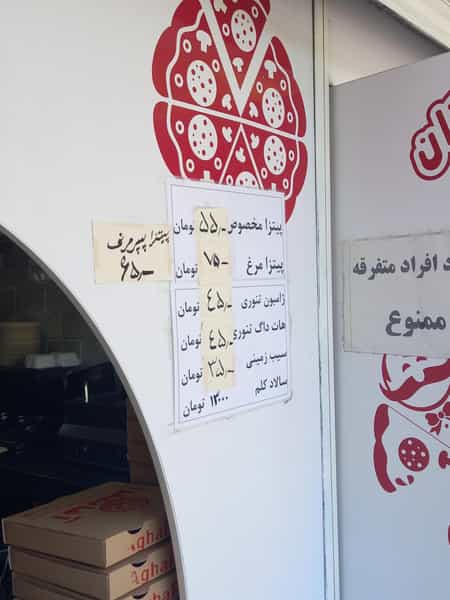 پیتزا مخصوص ۵۵٫- تومان
پیتزا مرغ ۷۵- تومان
ژامبون تنوری ۴۵٫- تومان
هات داگ تنوری ۴۵٫- تومان
سیب زمینی ۳۵٫- تومان
سالاد کلم ۱۲۰۰۰ تومان
پیتزا پپرمرغ
۶۵٫-
د افراد متفرقه
ممنوع
Agha
Agha